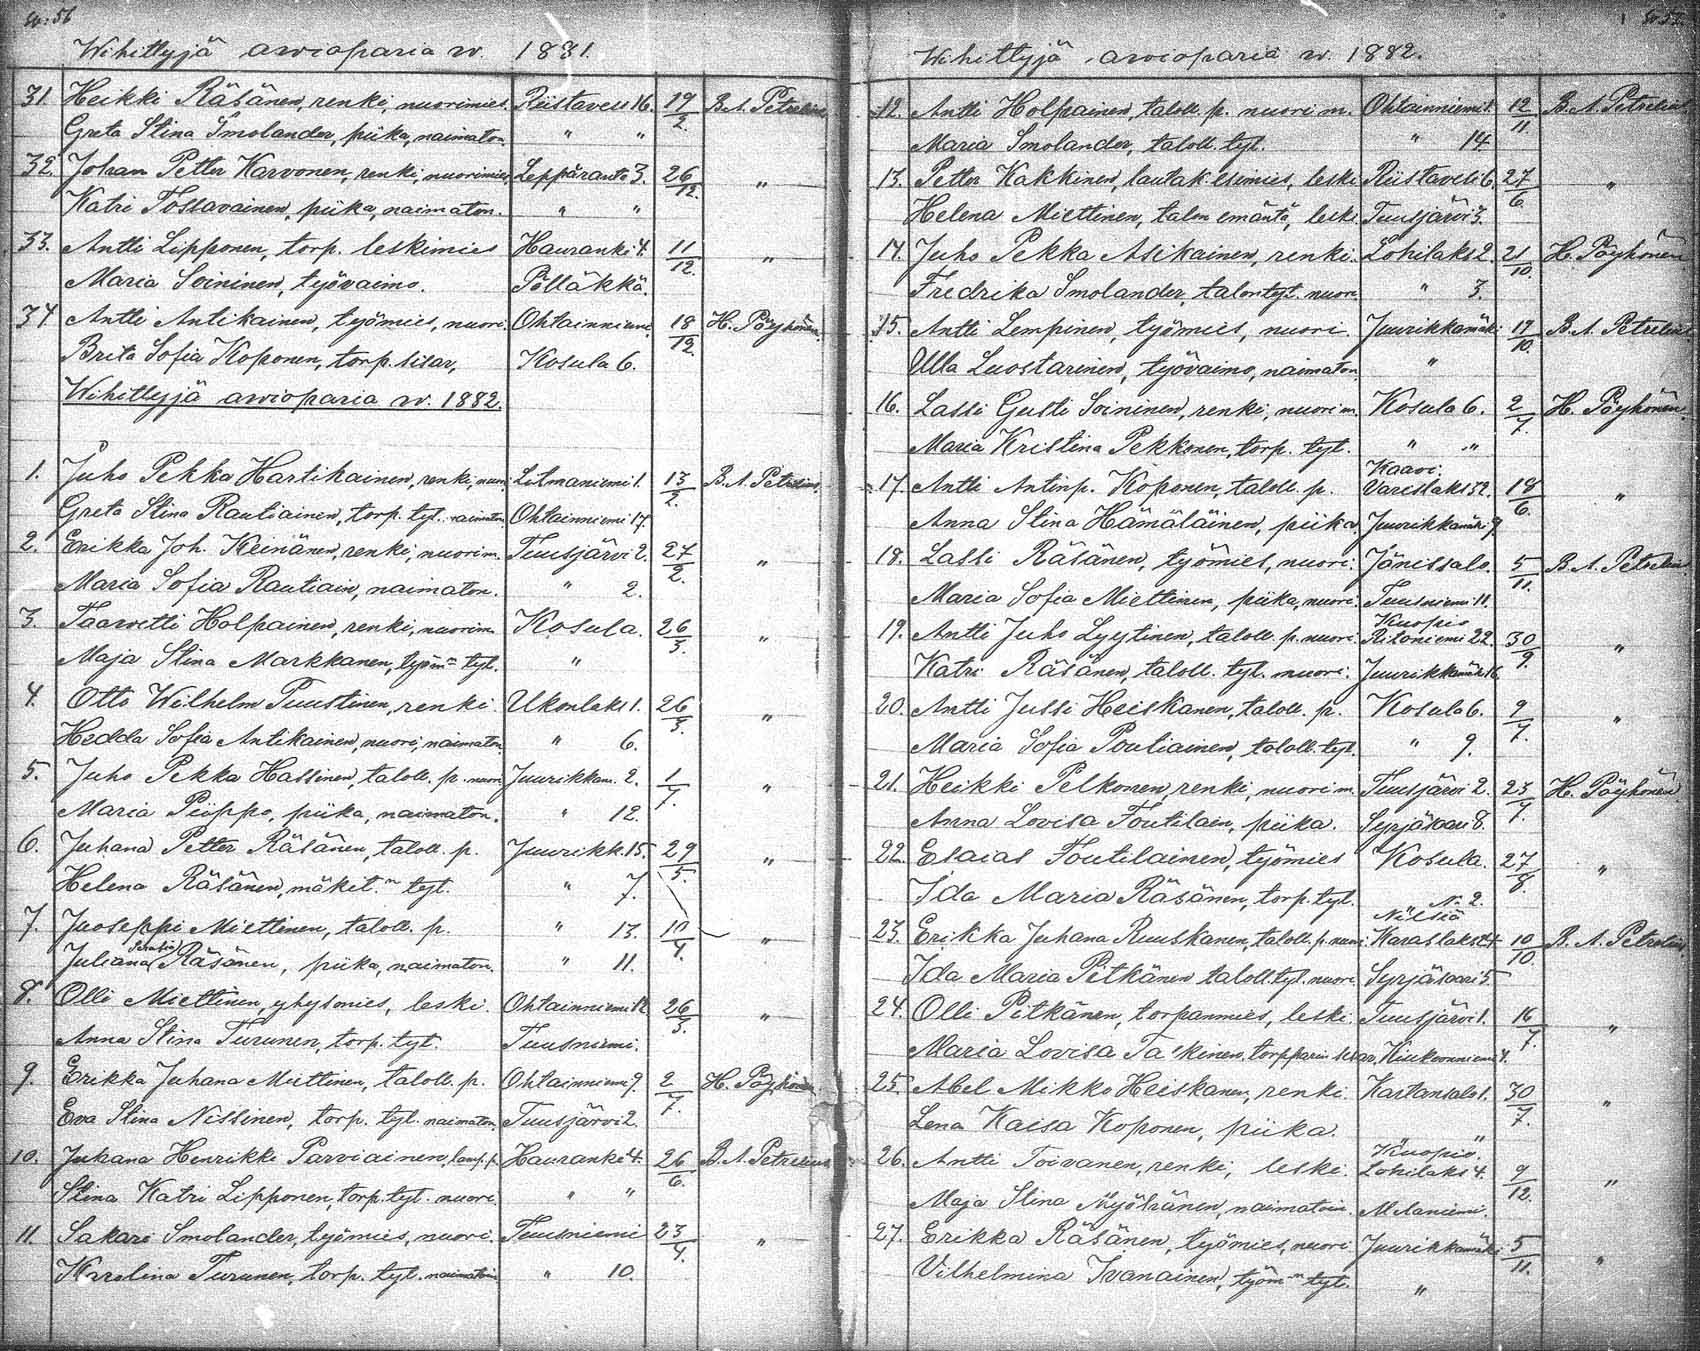 Siv: 56
Wihittyjä awioparia w. 1881.
31. Heikki Räsänen, renki, nuorimies. Riistavesi 16. 19/2. B. A. Petrelius
Greta Stina Smolander, piika, naimaton. " "
32. Johan Petter Karvonen, renki, nuorimies, Leppäranta 3. 26/12. "
Katri Tossavainen, piika, naimaton. " "
33. Antti Lipponen, torp. leskimies Hauranki 4. 11/12. "
Maria Soininen, työvaimo. Pölläkkä.
34 Antti Antikainen, työmies, nuori. Ohtainniemi 18/12. H. Pöyhönen
Brita Sofia Koponen, torp. sisar, Kosula 6.
Wihittyjä awioparia w. 1882.
1. Juho Pekka Hartikainen, renki, nuori. Litmaniemi 1. 13/2. B. A. Petrelius.
Greta Stina Rautiainen, torp. tyt. naimaton Ohtainniemi 17.
2. Erikka Joh. Keinänen, renki, nuorim. Tuusjärvi 2. 27/2. "
Maria Sofia Rautiain, naimaton. " 2.
3. Taavetti Holpainen, renki, nuorim. Kosula. 26/3. "
Maja Stina Markkanen, työm:n tyt. "
4. Otto Wilhelm Puustinen, renki. Ukonlaks 1. 26/3. "
Hedda Sofia Antikainen, nuori, naimaton. " 6.
5. Juho Pekka Hassinen, taloll. p. nuori Juurikkam. 2. 1/7. "
Maria Piippo, piika, naimaton. " 12.
6. Juhana Petter Räsänen, taloll. p. Juurikk. 15. 29/5. "
Helena Räsänen, mäkit:n tyt. " 7.
7. Juoseppi Miettinen, taloll. p. " 13. 10/4. "
Juliana Räsänen, piika, naimaton. " 11.
8. Olli Miettinen, yhtymies, leski. Ohtainniemi 12. 26/3. "
Anna Stina Turunen, torp. tyt. Tuusniemi.
9. Erikka Juhana Miettinen, taloll. p. Ohtainniemi 9. 2/7. H. Pöyhönen
Eva Stina Nissinen, torp. tyt. naimaton. Tuusjärvi 2.
10. Juhana Henrikki Parviainen, lamp. p. Hauranki 4. 26/6. B. A. Petrelius
Stina Katri Lipponen, torp. tyt. nuori. " "
11. Sakari Smolander, työmies, nuori. Tuusniemi 23/4. "
Karolina Turunen, torp. tyt. naimaton " 10.
Wihittyjä awioparia w. 1882.
12. Antti Holpainen, taloll. p. nuori m. Ohtainniemi 1. 12/11. B. A. Petrelius
Maria Smolander, taloll. tyt. " 14.
13. Petter Kakkinen, lautak. esimies, leski Riistavesi 6. 27/6. "
Helena Miettinen, talon emäntä, leski. Tuusjärvi 3.
14. Juho Pekka Asikainen, renki. Lohilaks 2. 21/10. H. Pöyhönen
Fredrika Smolander, talon tyt. nuori. " 3.
15. Antti Lempinen, työmies, nuori. Juurikkamäki 17/10. B. A. Petrelius
Ulla Luostarinen, työvaimo, naimaton. "
16. Lassi Gusti Soininen, renki, nuori m. Kosula 6. 2/7. H. Pöyhönen.
Maria Kristina Pekkonen, torp. tyt. " "
17. Antti Antinp. Koponen, taloll. p. Kaavi. Varislaks 32. 18/6. "
Anna Stina Hämäläinen, piika. Juurikkamäki 9.
18. Lassi Räsänen, työmies, nuori. Jänissalo. 5/11. B. A. Petrelius
Maria Sofia Miettinen, piika, nuori. Tuusniemi 11.
19. Antti Juho Lyytinen, taloll. p. nuori. Kuopio Ritoniemi 22. 30/9. "
Katri Räsänen, taloll. tyt. nuori. Juurikkamäki 16.
20. Antti Jussi Heiskanen, taloll. p. Kosula 6. 9/7. "
Maria Sofia Poutiainen, taloll. tyt. " 9.
21. Heikki Pelkonen, renki, nuori m. Tuusjärvi 2. 23/7. H. Pöyhönen
Anna Lovisa Toutilain, piika. Syrjäsaari 8.
22. Esaias Toutilainen, työmies Kosula. 27/8. "
Ida Maria Räsänen, torp. tyt. " N:o 2.
23. Erikka Juhana Ruuskanen, taloll. p. nuori. Nilsiä Karaslaks 24. 10/10 B. A. Petrelius
Ida Maria Pitkänen taloll. tyt. nuori. Syrjäsaari 5
24. Olli Pitkänen, torpanmies, leski. Tuusjärvi 1. 16/7. "
Maria Lovisa Ta'skinen, torpparin sisar, Kiukoonniemi 4.
25. Abel Mikko Heiskanen, renki. Kartansalo 1. 30/7. "
Lena Kaisa Koponen, piika. "
26. Antti Toivanen, renki, leski. Kuopio. Lohilaks 4. 9/12. "
Maja Stina Myöhänen, naimatoin. Melaniemi.
27. Erikka Räsänen, työmies, nuori Juurikkamäki 5/11. "
Vilhelmina Ivanainen, työm:n tyt. "